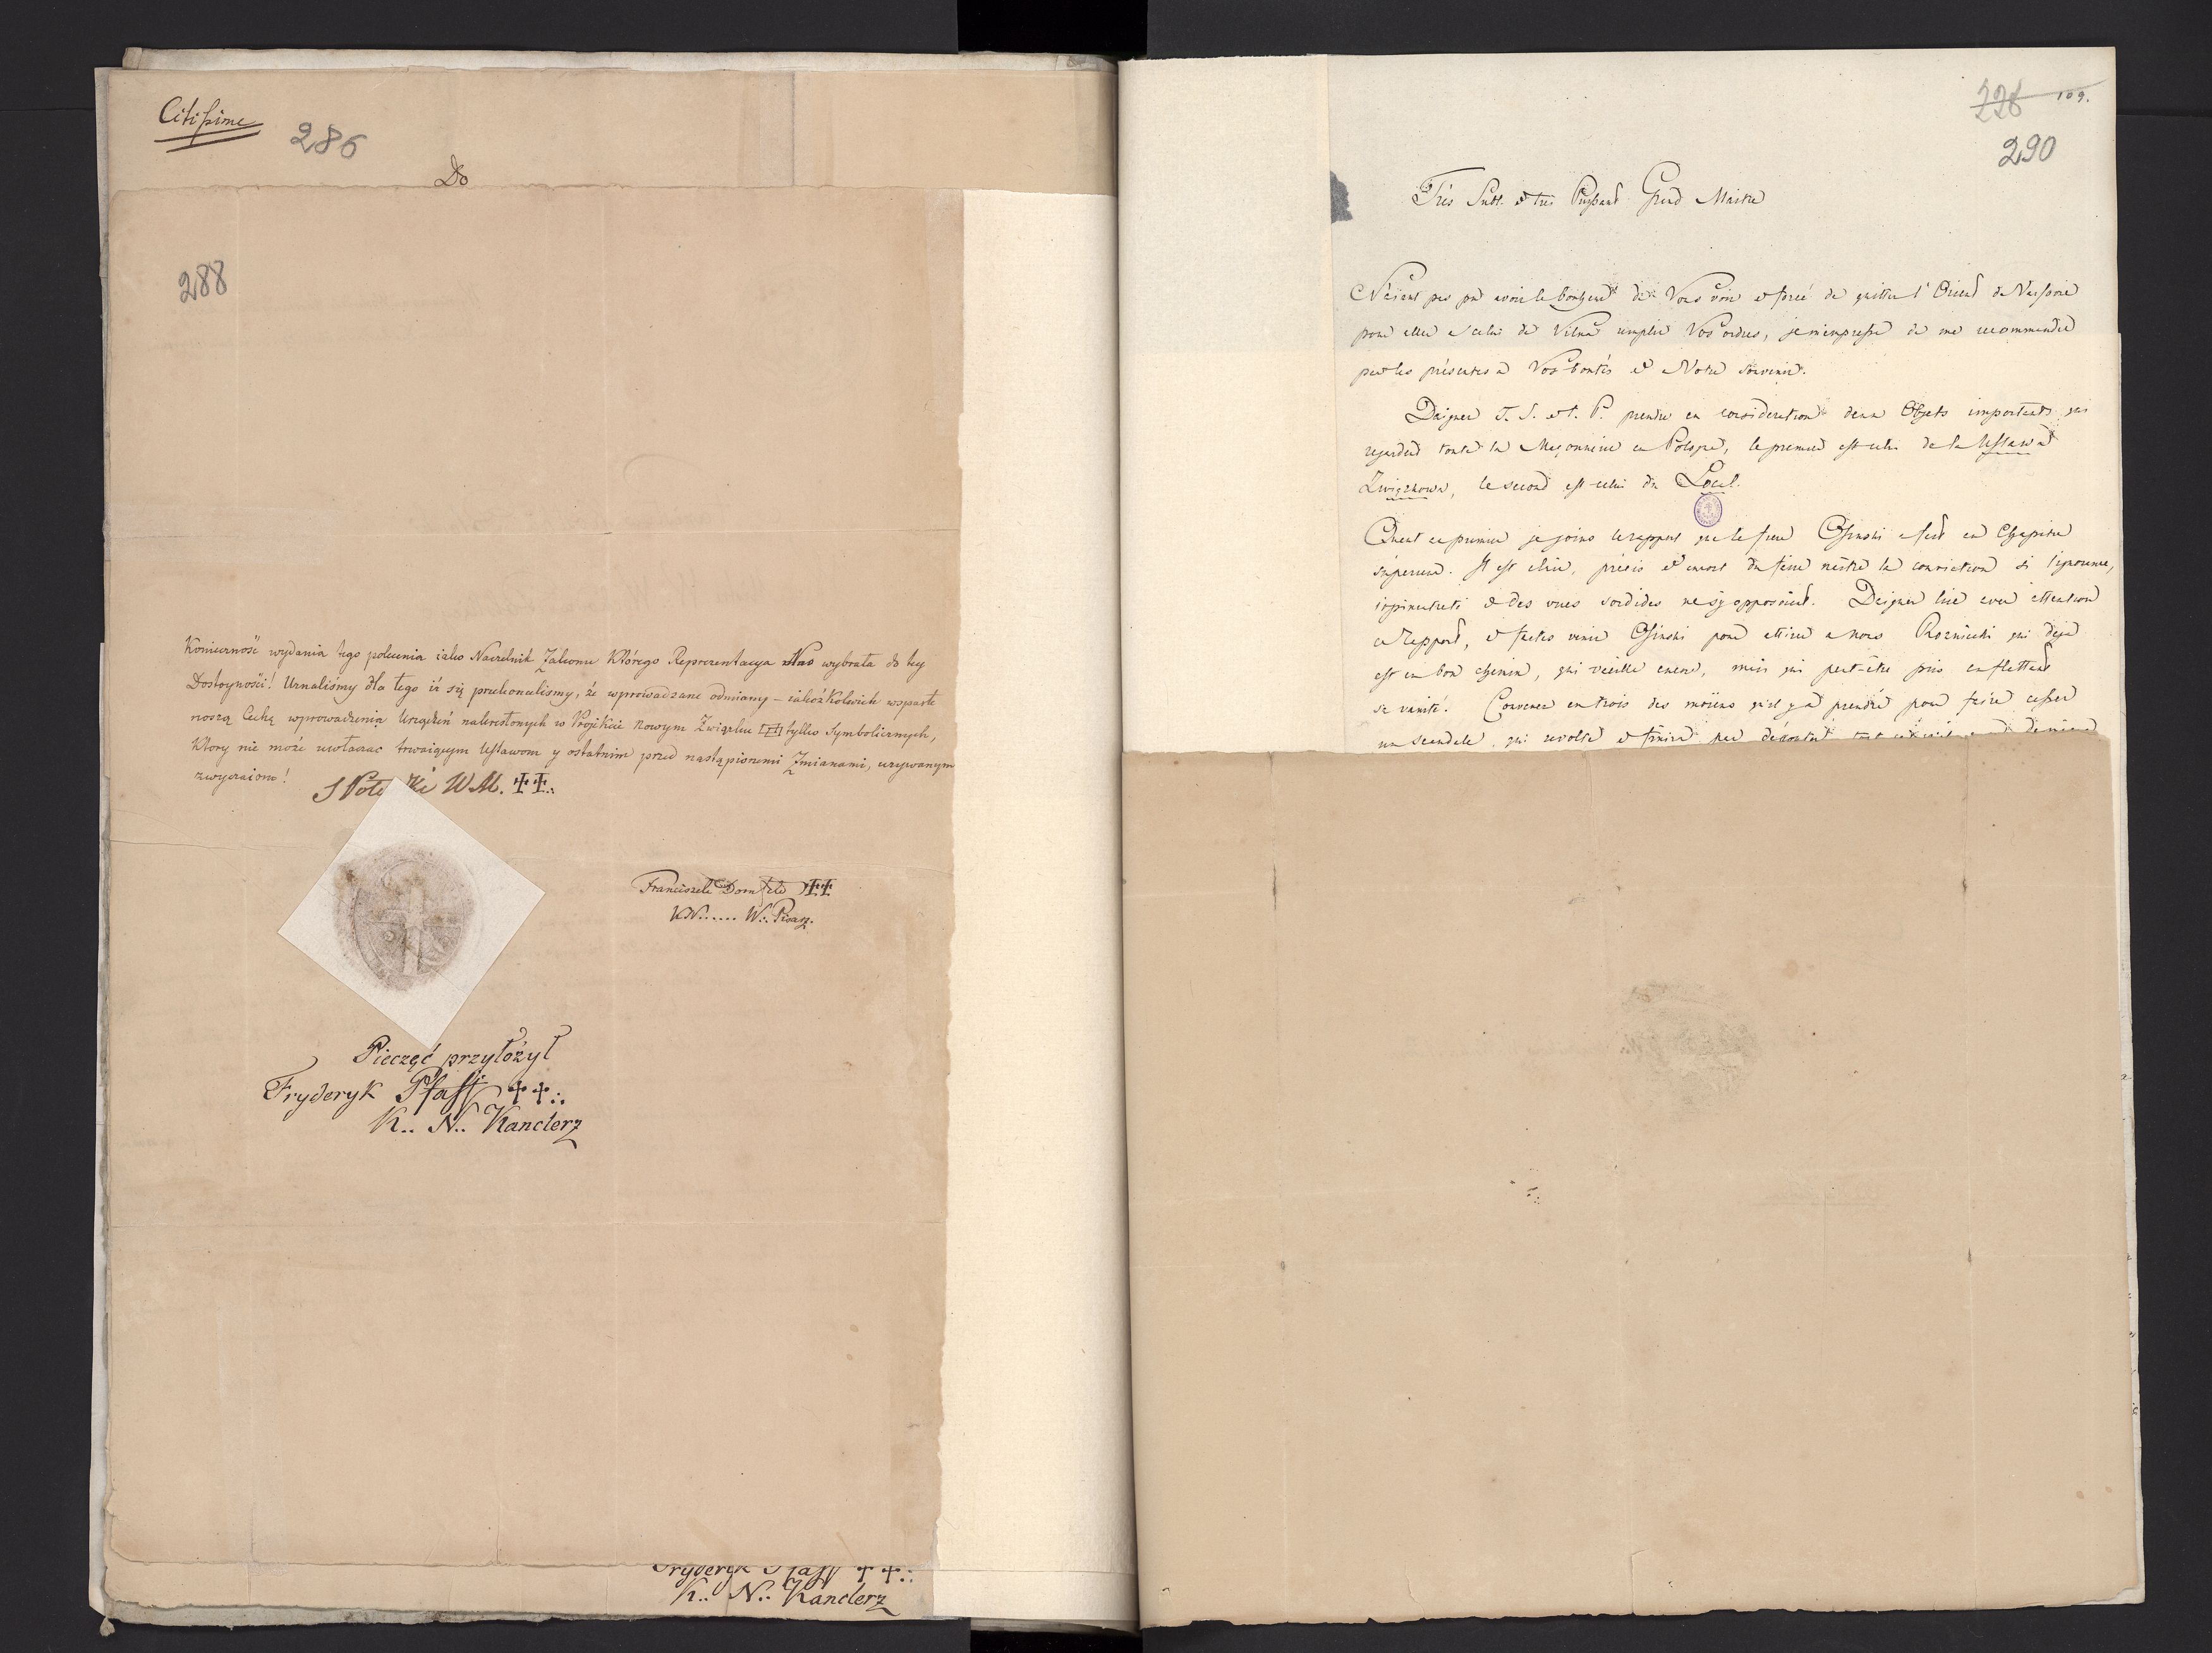 Citissime
286
Do
288
Konieczność wydania tego polecenia iako Naczelnik Zakonu którego Reprezentacya Nas wybrała do tey
Dostoyności! Uznaliśmy dla tego iż się przekonaliśmy, że wprowadzane odmiany – iakożkolwiek wsparte
noszą Cechę wprowadzenia Urządzeń nakreślonych w Projekcie nowym Związku tylko Symbolicznych,
który nie może uwłaczać trwaiącym Ustawom y ostatnim przed nastąpionemi Zmianami, używanym
zwyczaiom!
S Potocki W.M.
Franciszek
K.N...... W.. Pisarz.
Pieczęć przyłożył
Fryderyk Pfaff ++..
K.. N.. Kanclerz
Fryderyk Pfaff ++..
K.. N.. Kanclerz
226 109.
290
Très Subl. et très Puissant Grand Maitre
N'aiant pas pu avoir le bonheur de Vous voir et forcé de quitter l'Orient de Varsovie
pour aller a celui de Vilna remplir Vos ordres, je m'empresse de me recommander
par les présentes a Vos bontés et Votre souvenir.
Daignez T. S. et t. P. prendre en consideration deux Objets importants qui
regardent toute la Maçonnerie en Pologne, le premier est celui de la Ustawa
Związkowa, le second est celui du Local.
Quant au premier je joins le rapport que le frere Osinski a fait au Chapitre
Superieur. Il est clair, précis et encore du faire naitre la conviction si l'ignorance,
et des vues sordides ne s'y opposoient. Daignez lire avec attention
ce Rapport, et faites venir Osinski pour attirer a nous Rozniecki qui deja
est en bon chemin, qui vacille encore, mais qui peut-être pris en flattant
sa vanité. Convenez en trois des moiens qu'il y a prendre pour faire cesser
un scandale qui revolte et finira par